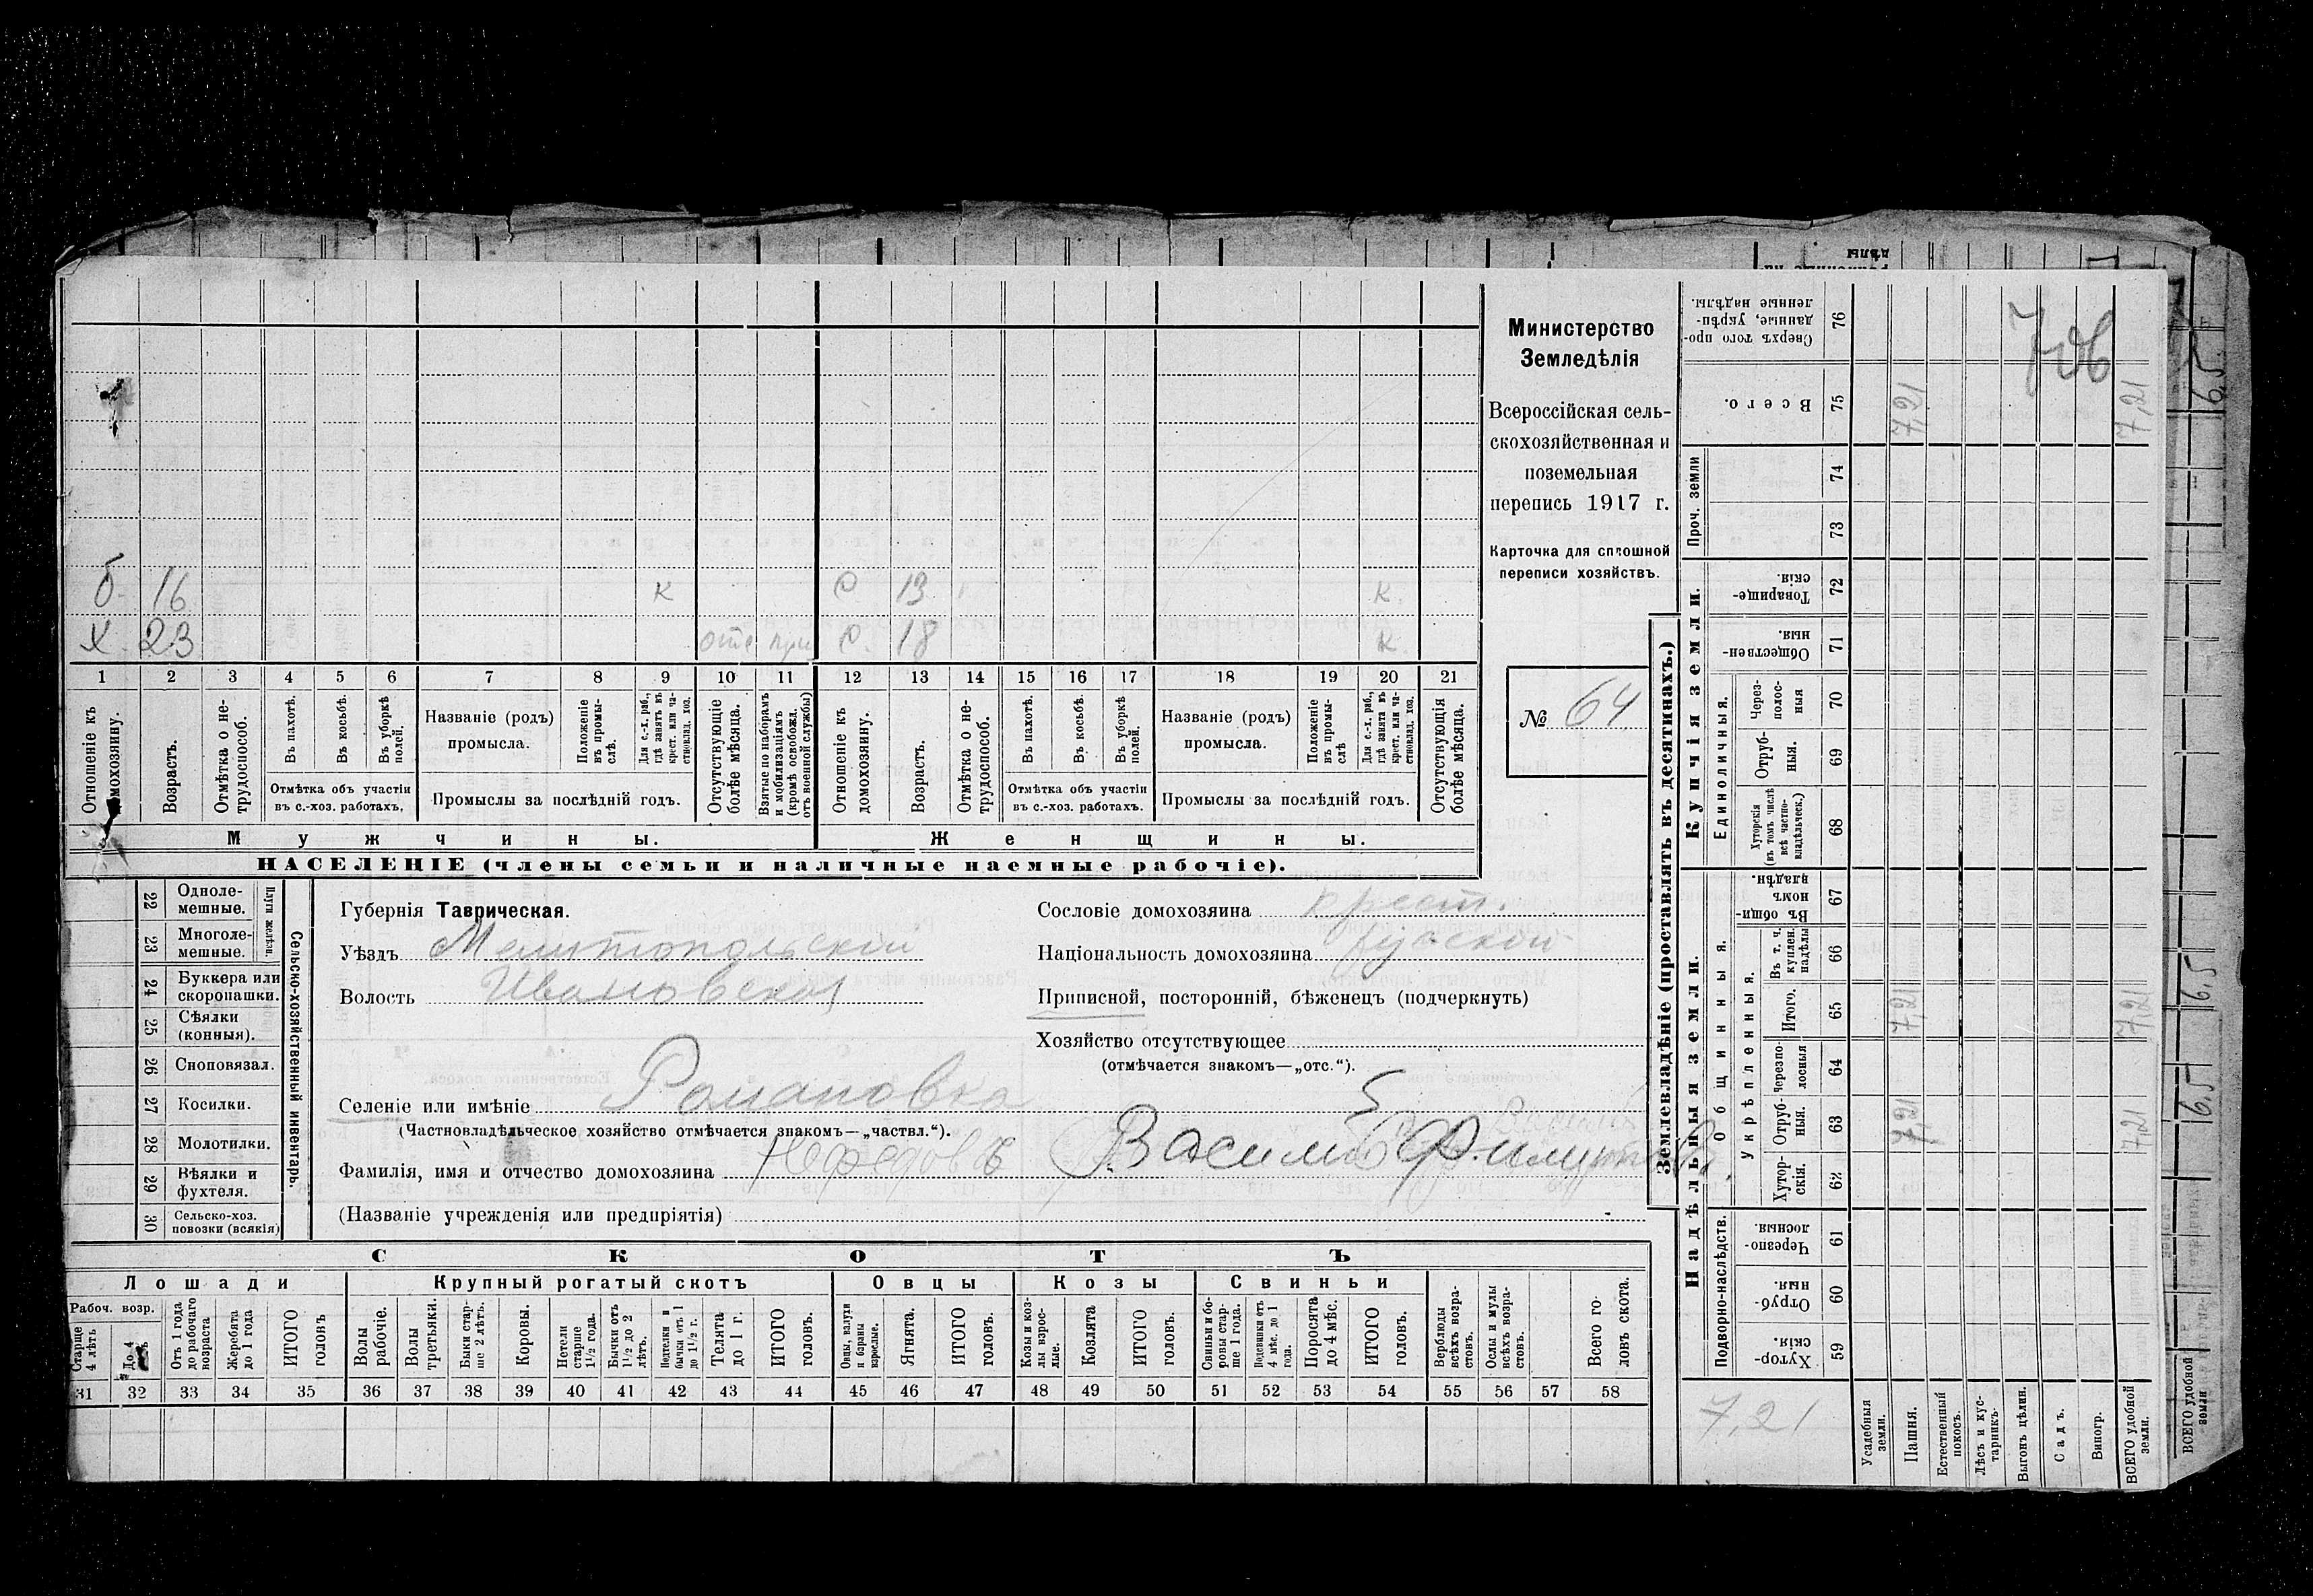 б. 16 к С 13 к.
х. 23 отс при С. 18 к.
1 2 3 4 5 6 7 8 9 10 11 12 13 14 15 16 17 18 19 20 21
Отношеніе къ домохозяину.
Возрастъ.
Отмѣтка о не-
трудоспособ.
Въ пахотѣ.
Въ косьбѣ.
Въ уборкѣ
полей.
Отмѣтка объ участіи
въ с.-хоз. работахъ.
Названіе (родъ)
промысла.
Положеніе
въ промы-
слѣ.
Для с.-х. раб.,
гдѣ занятъ въ
крест. или ча-
стновлад. хоз.
Промыслы за послѣдній годъ.
Отсутствующіе
болѣе мѣсяца.
Взятые по наборамъ
и мобилизаціямъ
(кромѣ освобожд.
отъ военной службы)
Отношеніе къ
домохозяину.
Возрастъ.
Отмѣтка о не-
трудоспособ.
Въ пахотѣ.
Въ косьбѣ.
Въ уборкѣ
полей.
Отмѣтка объ участіи
въ с.-хоз. работахъ.
Названіе (родъ)
промысла.
Положеніе
въ промы-
слѣ
Для с.-х. раб.,
гдѣ занята въ
крест. или ча-
стновлад. хоз.
Промыслы за послѣдній годъ.
Отсутствующія
болѣе мѣсяца.
Мужчины.
Женщины.
НАСЕЛЕНІЕ (члены семьи и наличные наемные рабочіе).
Министерство
Земледѣлія
Всероссійская сель-
скохозяйственная и
поземельная
перепись 1917 г.
Карточка для сплошной
переписи хозяйствъ.
№ 64
22 Одноле-
мешные.
23 Многоле-
мешные.
Плуги желѣзн.
24 Буккера или
скоропашки.
25 Сѣялки
(конныя).
26 Сноповязал.
27 Косилки.
28 Молотилки.
29 Вѣялки и
фухтеля.
30 Сельско-хоз.
повозки (всякія)
Сельско-хозяйственный инвентарь.
Губернія Таврическая.
Уѣздъ Мелитопольскій
Волость Ивановская
Сословіе домохозяина крест.
Національность домохозяина русскій
Приписной, посторонній, бѣженецъ (подчеркнуть)
Хозяйство отсутствующее
(отмѣчается знакомъ—„отс.“).
Селеніе или имѣніе Романовка 5
(Частновладѣльческое хозяйство отмѣчается знакомъ—„частвл.“).
Фамилія, имя и отчество домохозяина Нефедовъ Василій
(Названіе учрежденія или предпріятія)
СКОТЪ
Лошади
Крупный рогатый скотъ
Овцы
Козы
Свиньи
Рабоч. возр.
Старше
4 лѣтъ
До 4
лѣтъ
Отъ 1 года
до рабочаго
возраста
Жеребята
до 1 года
ИТОГО
головъ
Волы
рабочіе.
Волы
третьяки.
Быки стар-
ше 2 лѣтъ.
Коровы.
Нетели
старше
1½ года.
Бычки отъ
1½ до 2
лѣтъ.
Подтелки и
бычки отъ 1
до 1½ г.
Телята
до 1 г.
ИТОГО
головъ.
Овцы, валухи
и бараны
взрослые.
Ягнята.
ИТОГО
головъ.
Козы и коз-
лы взрос-
лые.
Козлята
ИТОГО
головъ.
Свиньи и бо-
ровы стар-
ше 1 года.
Подсвинки отъ
4 мѣс. до 1
года.
Поросята
до 4 мѣс.
ИТОГО
головъ.
Верблюды
всѣхъ возра-
стовъ.
Ослы и мулы
всѣхъ возра-
стовъ.
Всего го-
ловъ скота.
31 32 33 34 35 36 37 38 39 40 41 42 43 44 45 46 47 48 49 50 51 52 53 54 55 56 57 58
Землевладѣніе (проставлять въ десятинахъ.)
Купчія земли.
Надѣльныя земли.
Сверхъ того про-
данные, укрѣп-
ленные надѣлы. 76
706
Всего. 75 7,21 7,21
Проч. земли
74
73
Товарище-
скія. 72
Обществен-
ныя. 71
Единоличныя.
Через-
полос-
ныя 70
Отруб-
ныя. 69
Хуторскія
(въ томъ числѣ
всѣ частно-
владѣльческ.) 68
Общинныя.
Въ общин-
номъ
владѣн. 67
Укрѣпленныя.
Въ т. ч.
куплен.
надѣлы 66
Итого. 65 7,21 7,21
Черезпо-
лосныя 64
Отруб-
ныя. 63 7,21 7,21
Хутор-
скія. 62
Подворно-наслѣдств.
Черезпо-
лосныя 61
Отруб-
ныя. 60
Хутор-
скія. 59
7,21
Усадебныя
земли.
Пашня.
Естественный
покосъ.
Лѣсъ и кус-
тарникъ.
Выгонъ цѣлин.
Садъ.
Виногр.
ВСЕГО удобной
земли.
6,5
6,5
6,5
ВСЕГО удобной
земли